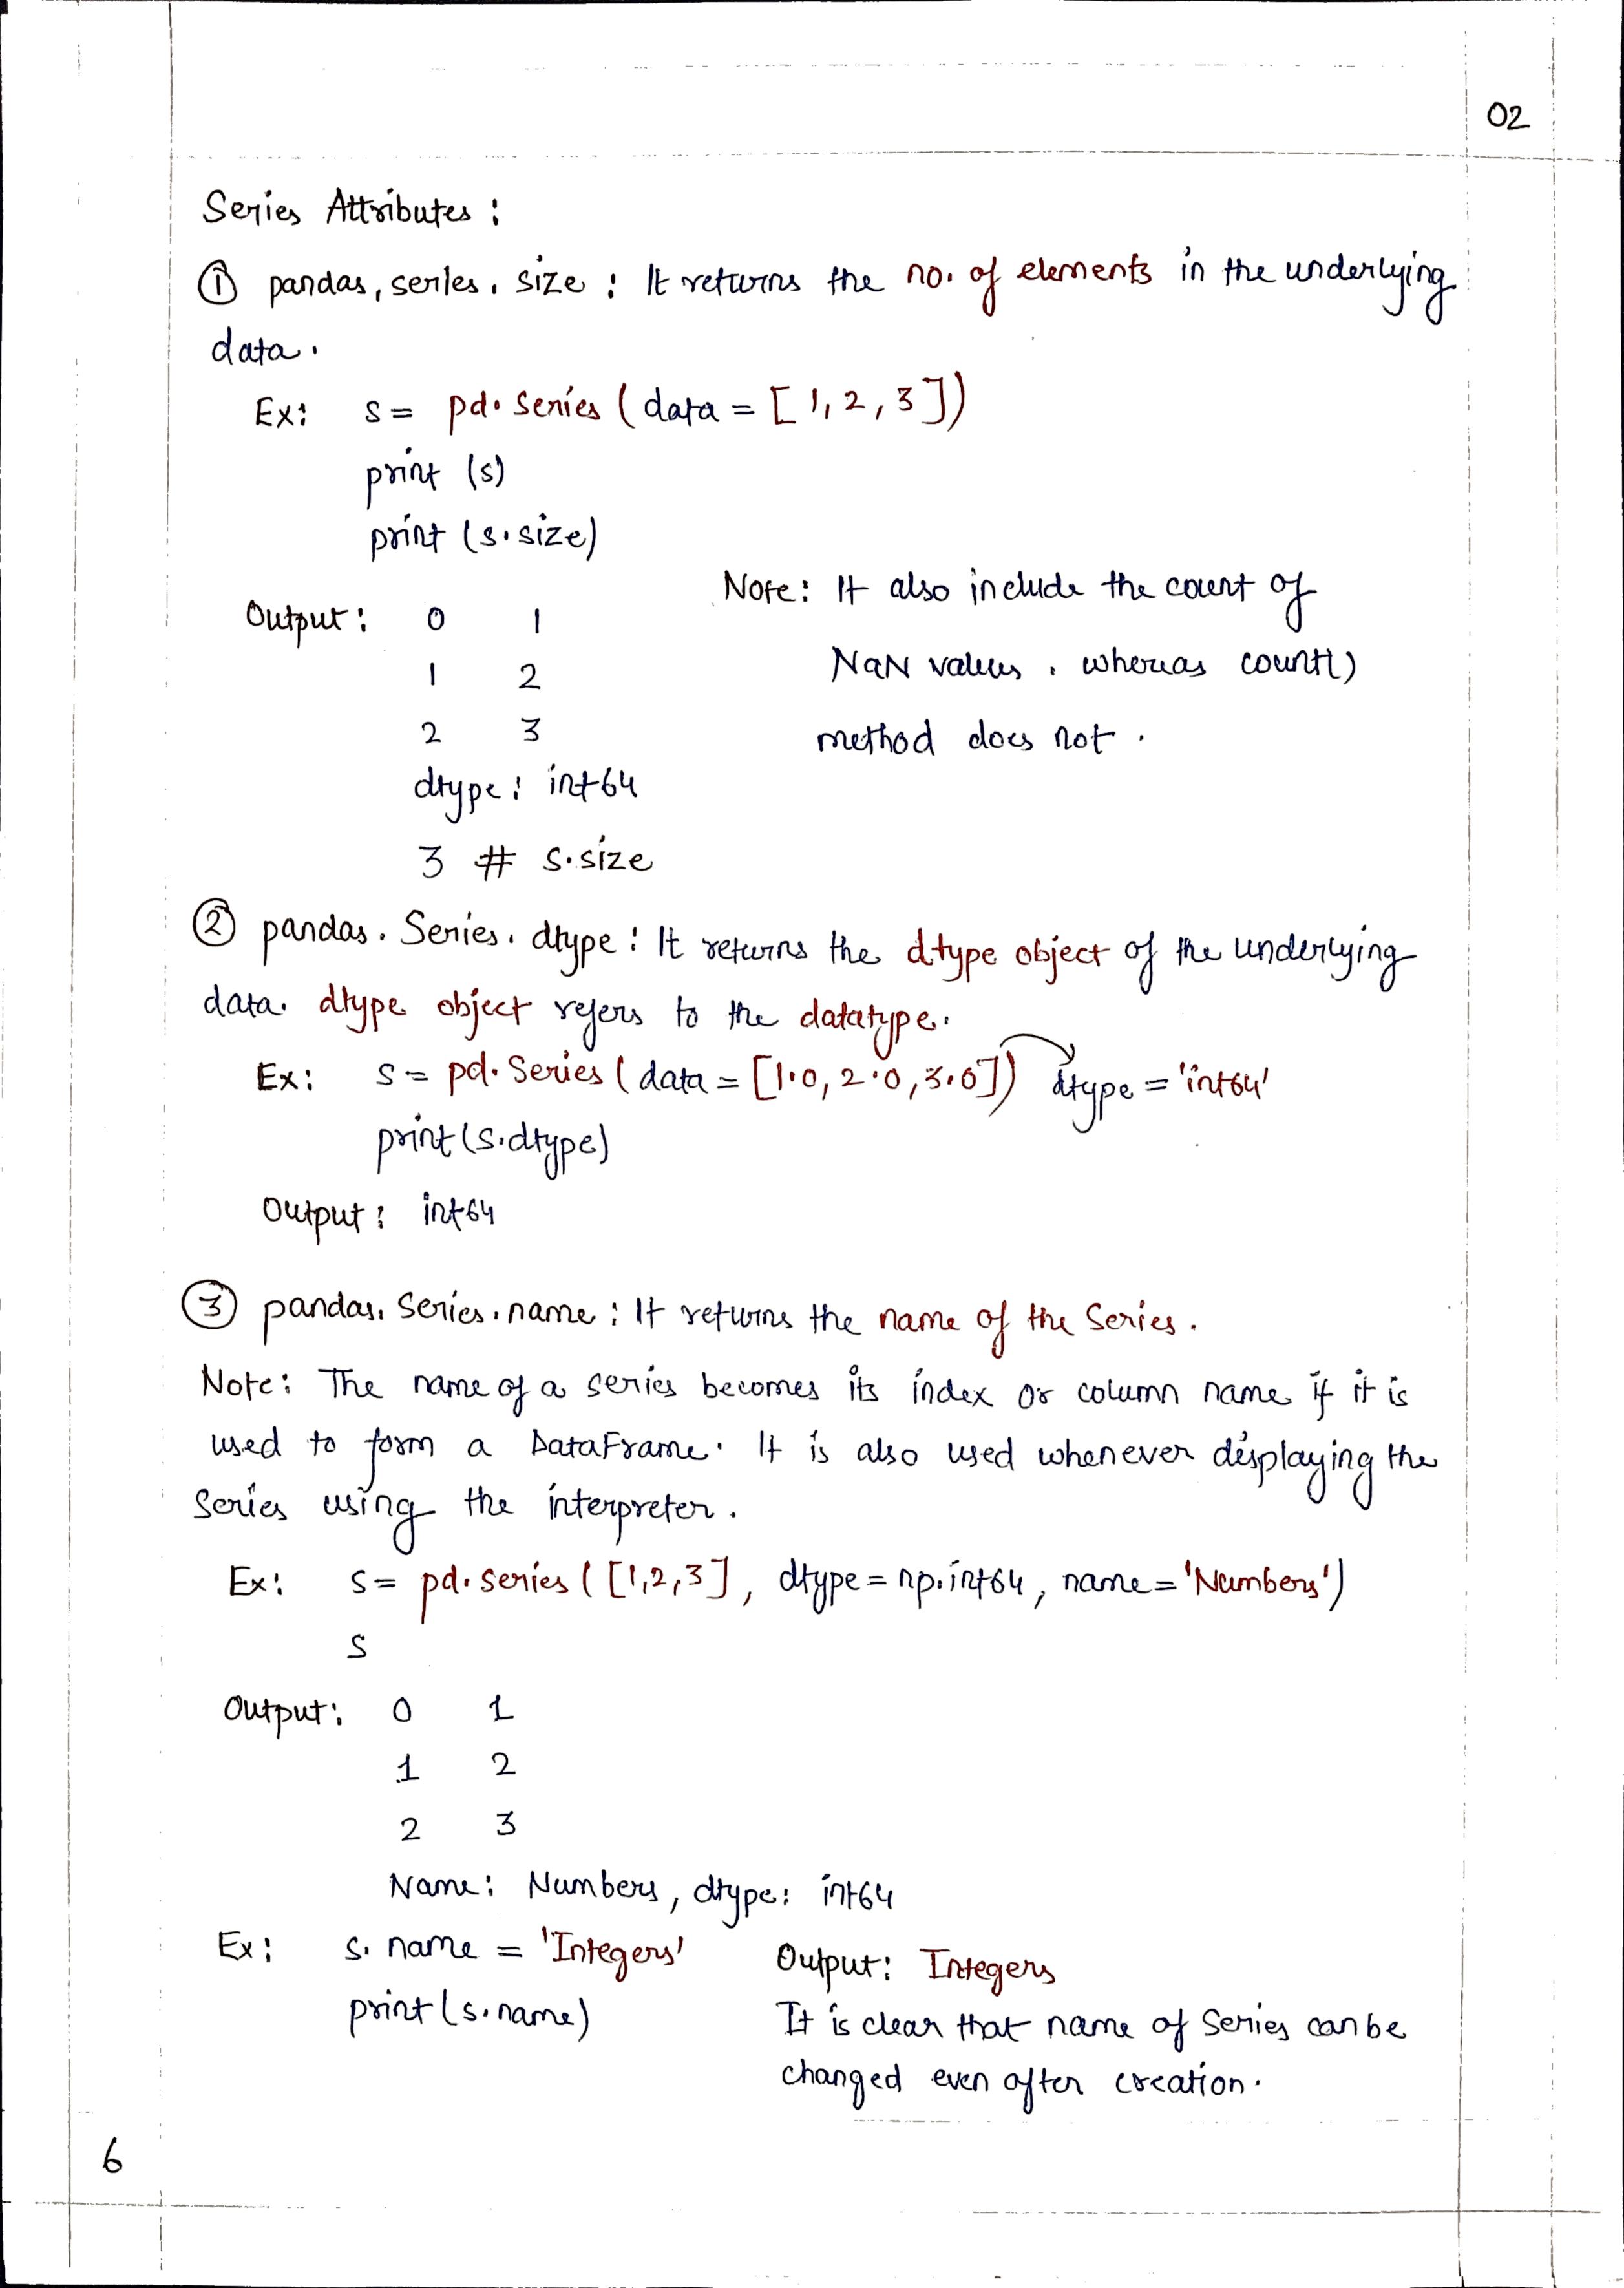 02
Series Attributes :
① pandas, series. size : It returns the no. of elements in the underlying
data.
Ex: s = pd. Series ( data = [ 1, 2, 3 ])
print (s)
print (s.size)
Output : 0 1
1 2
2 3
dtype : int64
3 # s.size
Note: It also include the count of
NaN values , whereas count()
method does not .
② pandas. Series. dtype : It returns the dtype object of the underlying
data. dtype object refers to the datatype.
Ex: s = pd. Series ( data = [1.0, 2.0, 3.0]) dtype = 'int64'
print (s.dtype)
Output : int64
③ pandas. Series. name : It returns the name of the Series .
Note : The name of a series becomes its index or column name if it is
used to form a DataFrame. It is also used whenever displaying the
Series using the interpreter .
Ex: s = pd. series ( [1,2,3] , dtype = np.int64 , name = 'Numbers')
s
Output : 0 1
1 2
2 3
Name : Numbers , dtype : int64
Ex : s. name = 'Integers'
print (s.name)
Output : Integers
It is clear that name of Series can be
changed even after creation .
6